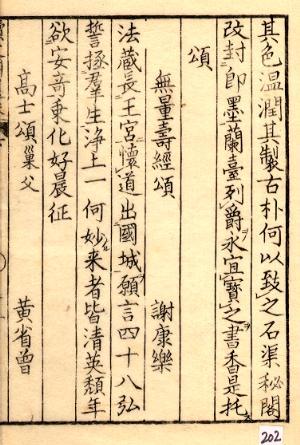 其色温潤其製古朴何以致之石渠秘閣
改封即墨蘭臺列爵永宜寶之書香是托
頌
無量壽經頌 謝康樂
法藏長王宮懷道出國城願言四十八弘
誓拯羣生淨土一何妙来者皆清英頽年
欲安寄乗化好晨征
高士頌巢父 黄省曾
202